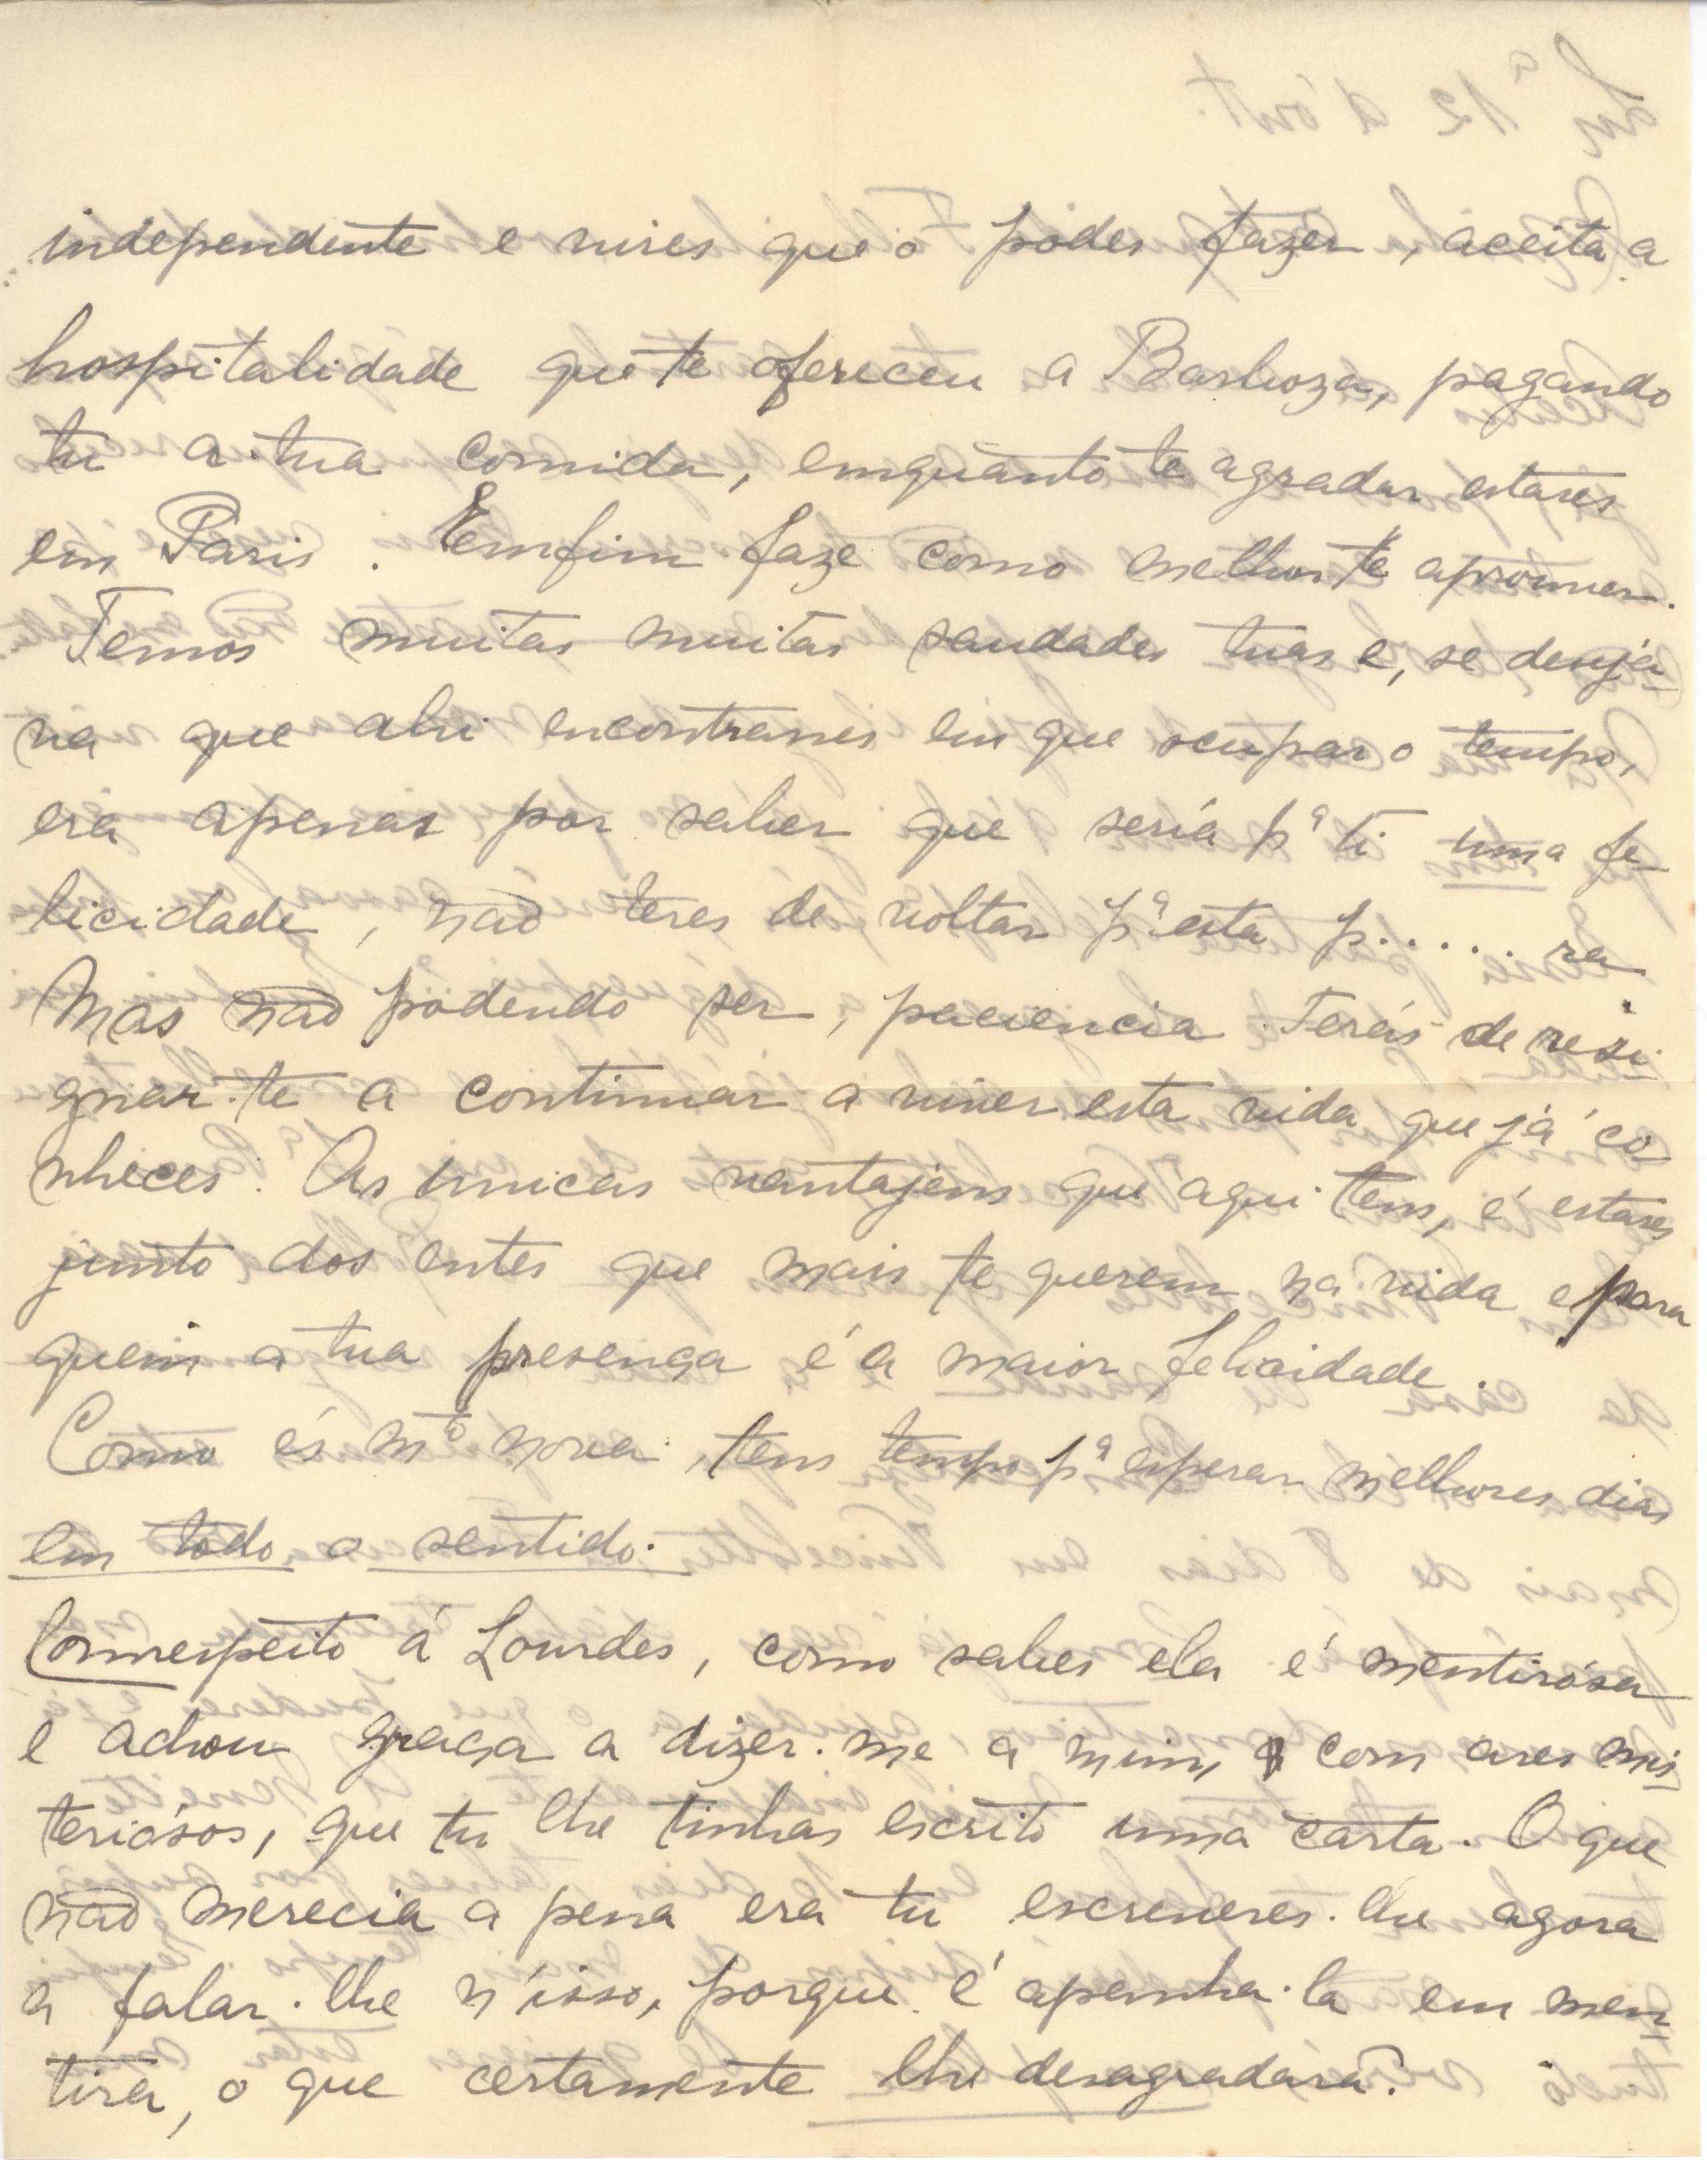 independente e vires que o pódes fazer, aceita a
hospitalidade que te ofereceu a Barboza, pagando
tu a tua comida, emquanto te agradar estares
em Paris. Emfim faze como melhor te aprouver.
Temos muitas muitas saudades tuas e, se deseja-
va que ahi encontrasses em que ocupar o tempo,
era apenas por saber que seria pª ti uma fe-
licidade, não teres de voltar pª esta p......ra
Mas não podendo ser, paciencia. Terás de resi-
gnar-te a continuar a viver esta vida que já co-
nheces. As unicas vantajens que aqui tens, é estares
junto dos entes que mais te querem na vida e para
quem a tua presença é a maior felicidade.
Como és mtº nova, tens tempo pª esperar melhores dias
em todo o sentido.
Com respeito á Lourdes, como sabes ela é mentirósa
e achou graça a dizer-me a mim, com ares mis-
teriósos, que tu lhe tinhas escrito uma carta. O que
não merecia a pena era tu escreveres-lhe agora
a falar-lhe n'isso, porque é apanha-la em men-
tira, o que certamente lhe desagradará.